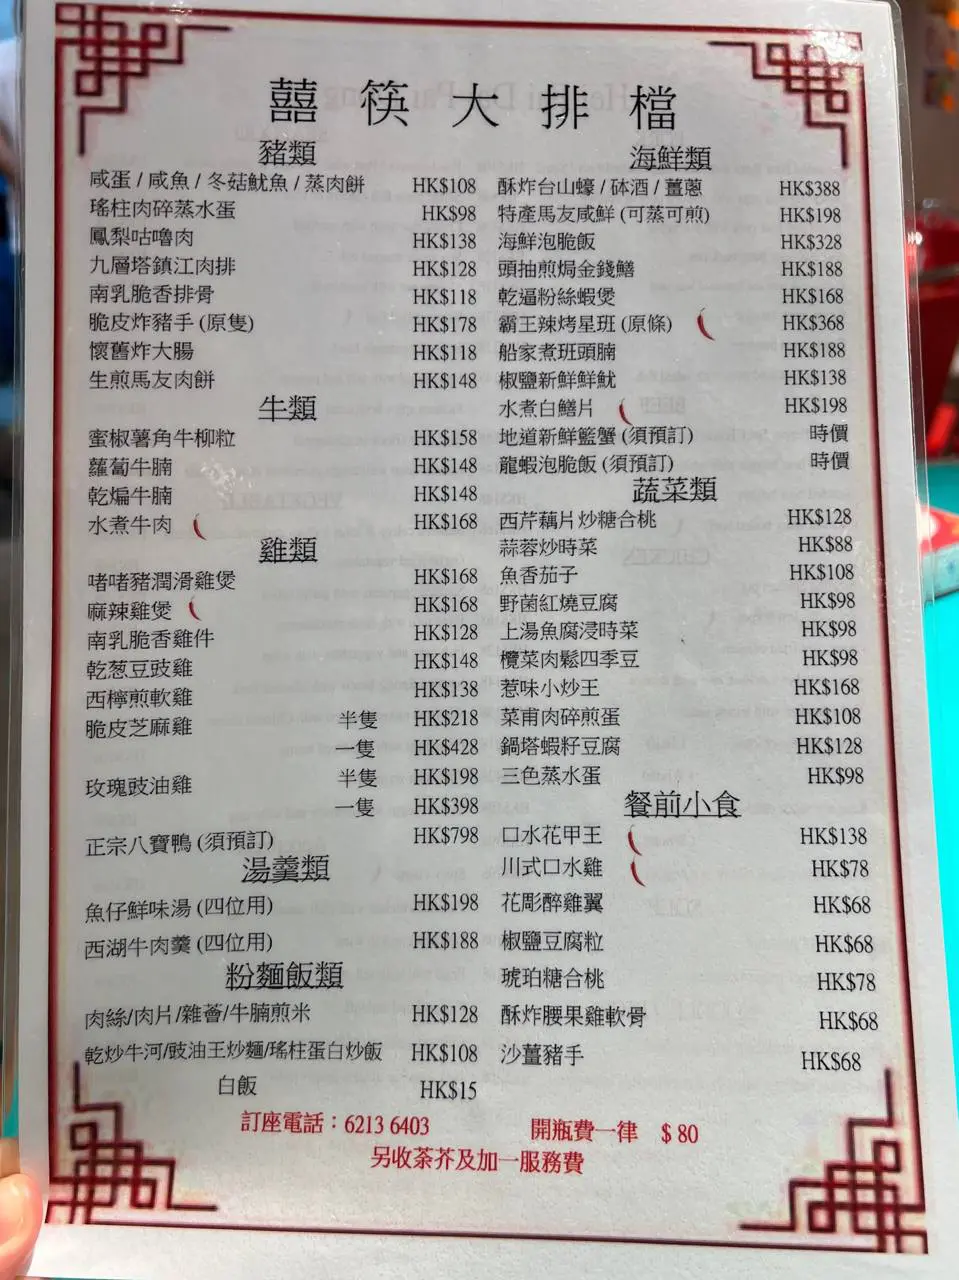 囍筷大排檔
豬類
咸蛋 / 咸魚 / 冬菇魷魚 / 蒸肉餅 HK$108
瑤柱肉碎蒸水蛋 HK$98
鳳梨咕嚕肉 HK$138
九層塔鎮江肉排 HK$128
南乳脆香排骨 HK$118
脆皮炸豬手 (原隻) HK$178
懷舊炸大腸 HK$118
生煎馬友肉餅 HK$148
牛類
蜜椒薯角牛柳粒 HK$158
蘿蔔牛腩 HK$148
乾煸牛腩 HK$148
水煮牛肉 HK$168
雞類
啫啫豬潤滑雞煲 HK$168
麻辣雞煲 HK$168
南乳脆香雞件 HK$128
乾葱豆豉雞 HK$148
西檸煎軟雞 HK$138
脆皮芝麻雞 半隻 HK$218
一隻 HK$428
玫瑰豉油雞 半隻 HK$198
一隻 HK$398
正宗八寶鴨 (須預訂) HK$798
湯羹類
魚仔鮮味湯 (四位用) HK$198
西湖牛肉羹 (四位用) HK$188
粉麵飯類
肉絲/肉片/雜薈/牛腩煎米 HK$128
乾炒牛河/豉油王炒麵/瑤柱蛋白炒飯 HK$108
白飯 HK$15
海鮮類
酥炸台山蠔 / 砵酒 / 薑蔥 HK$388
特產馬友咸鮮 (可蒸可煎) HK$198
海鮮泡脆飯 HK$328
頭抽煎焗金錢鱔 HK$188
乾逼粉絲蝦煲 HK$168
霸王辣烤星班 (原條) HK$368
船家煮班頭腩 HK$188
椒鹽新鮮鮮魷 HK$138
水煮白鱔片 HK$198
地道新鮮籃蟹 (須預訂) 時價
龍蝦泡脆飯 (須預訂) 時價
蔬菜類
西芹藕片炒糖合桃 HK$128
蒜蓉炒時菜 HK$88
魚香茄子 HK$108
野菌紅燒豆腐 HK$98
上湯魚腐浸時菜 HK$98
欖菜肉鬆四季豆 HK$98
惹味小炒王 HK$168
菜甫肉碎煎蛋 HK$108
鍋塔蝦籽豆腐 HK$128
三色蒸水蛋 HK$98
餐前小食
口水花甲王 HK$138
川式口水雞 HK$78
花彫醉雞翼 HK$68
椒鹽豆腐粒 HK$68
琥珀糖合桃 HK$78
酥炸腰果雞軟骨 HK$68
沙薑豬手 HK$68
訂座電話：6213 6403 開瓶費一律 $ 80
另收茶芥及加一服務費